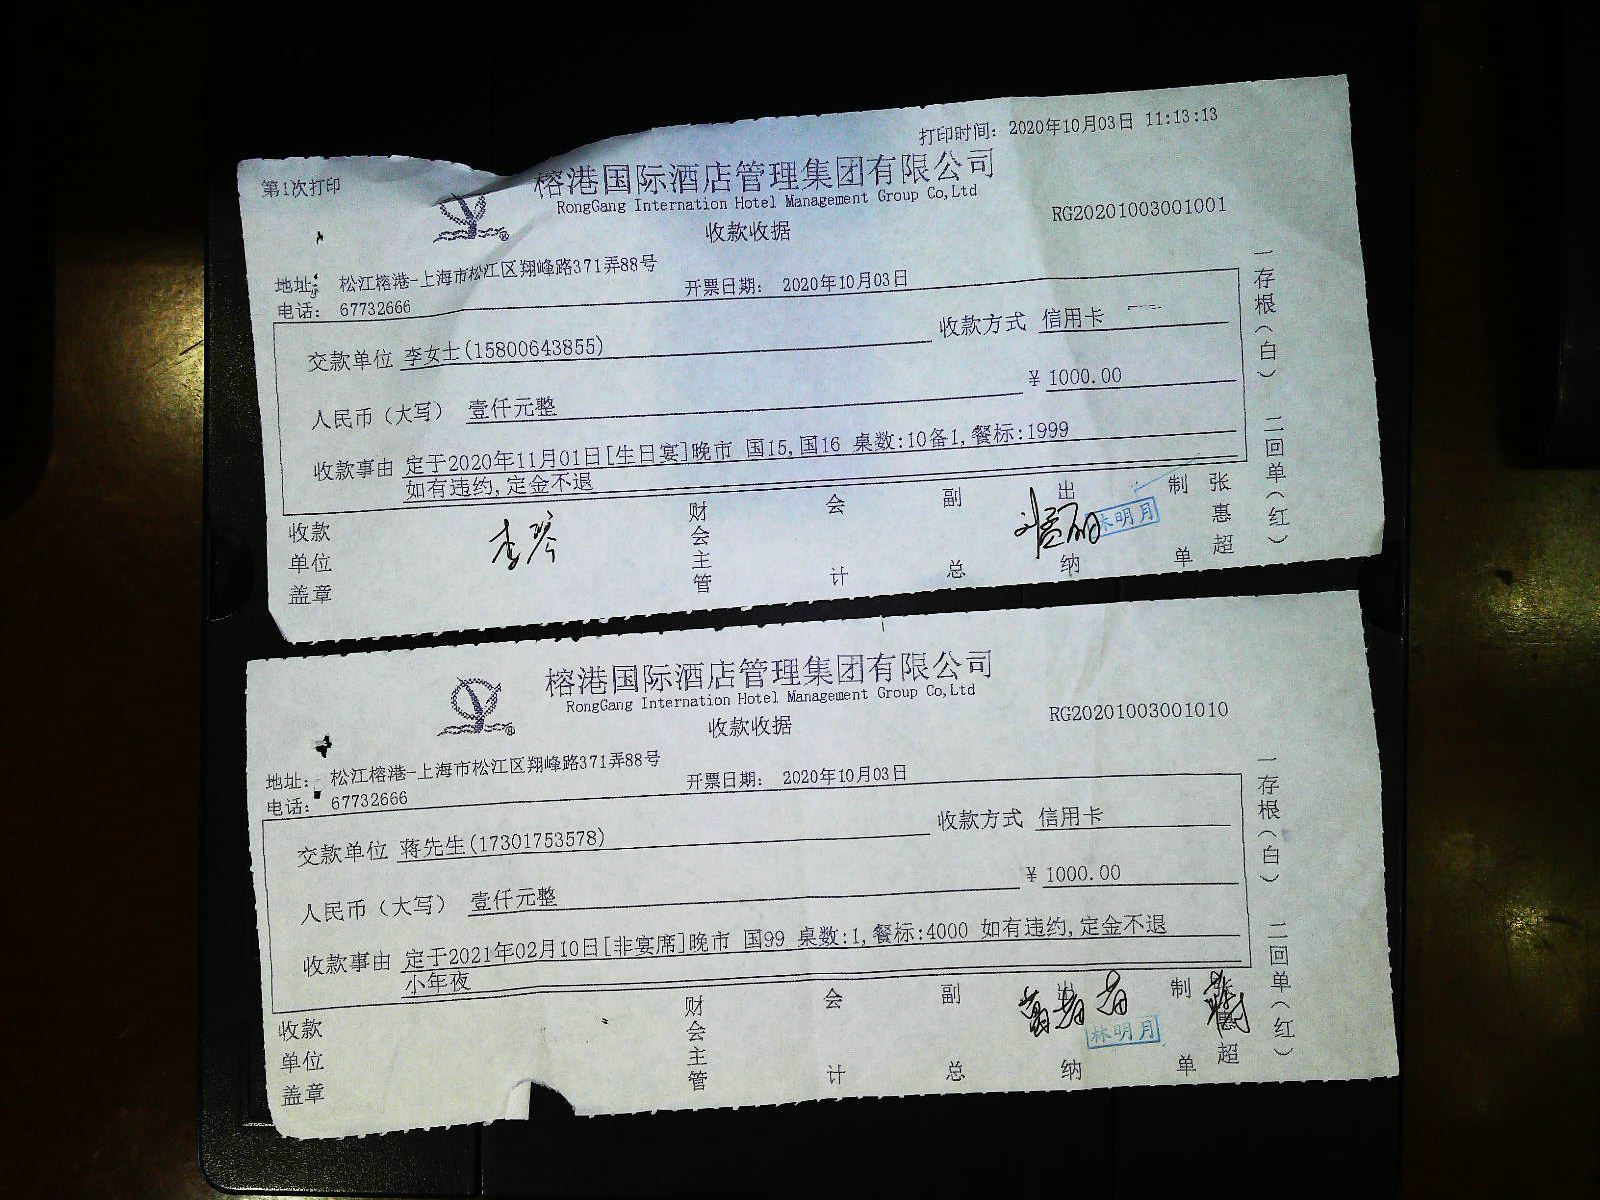 打印时间: 2020年10月03日 11:13:13
第1次打印
榕港国际酒店管理集团有限公司
RongGang Internation Hotel Management Group Co,Ltd
收款收据
RG20201003001001
地址: 松江榕港-上海市松江区翔峰路371弄88号
电话: 67732666
开票日期: 2020年10月03日
交款单位 李女士(15800643855)
收款方式 信用卡
人民币(大写) 壹仟元整
¥ 1000.00
收款事由 定于2020年11月01日[生日宴]晚市 国15,国16 桌数:10备1,餐标:1999
如有违约,定金不退
收款单位盖章
李琴
财会主管
会计
副总
出纳
林明月
制单
张惠超
一存根(白) 二回单(红)
榕港国际酒店管理集团有限公司
RongGang Internation Hotel Management Group Co,Ltd
收款收据
RG20201003001010
地址: 松江榕港-上海市松江区翔峰路371弄88号
电话: 67732666
开票日期: 2020年10月03日
交款单位 蒋先生(17301753578)
收款方式 信用卡
人民币(大写) 壹仟元整
¥ 1000.00
收款事由 定于2021年02月10日[非宴席]晚市 国99 桌数:1,餐标:4000 如有违约,定金不退
小年夜
收款单位盖章
财会主管
会计
副总
出纳
林明月
制单
惠超
一存根(白) 二回单(红)